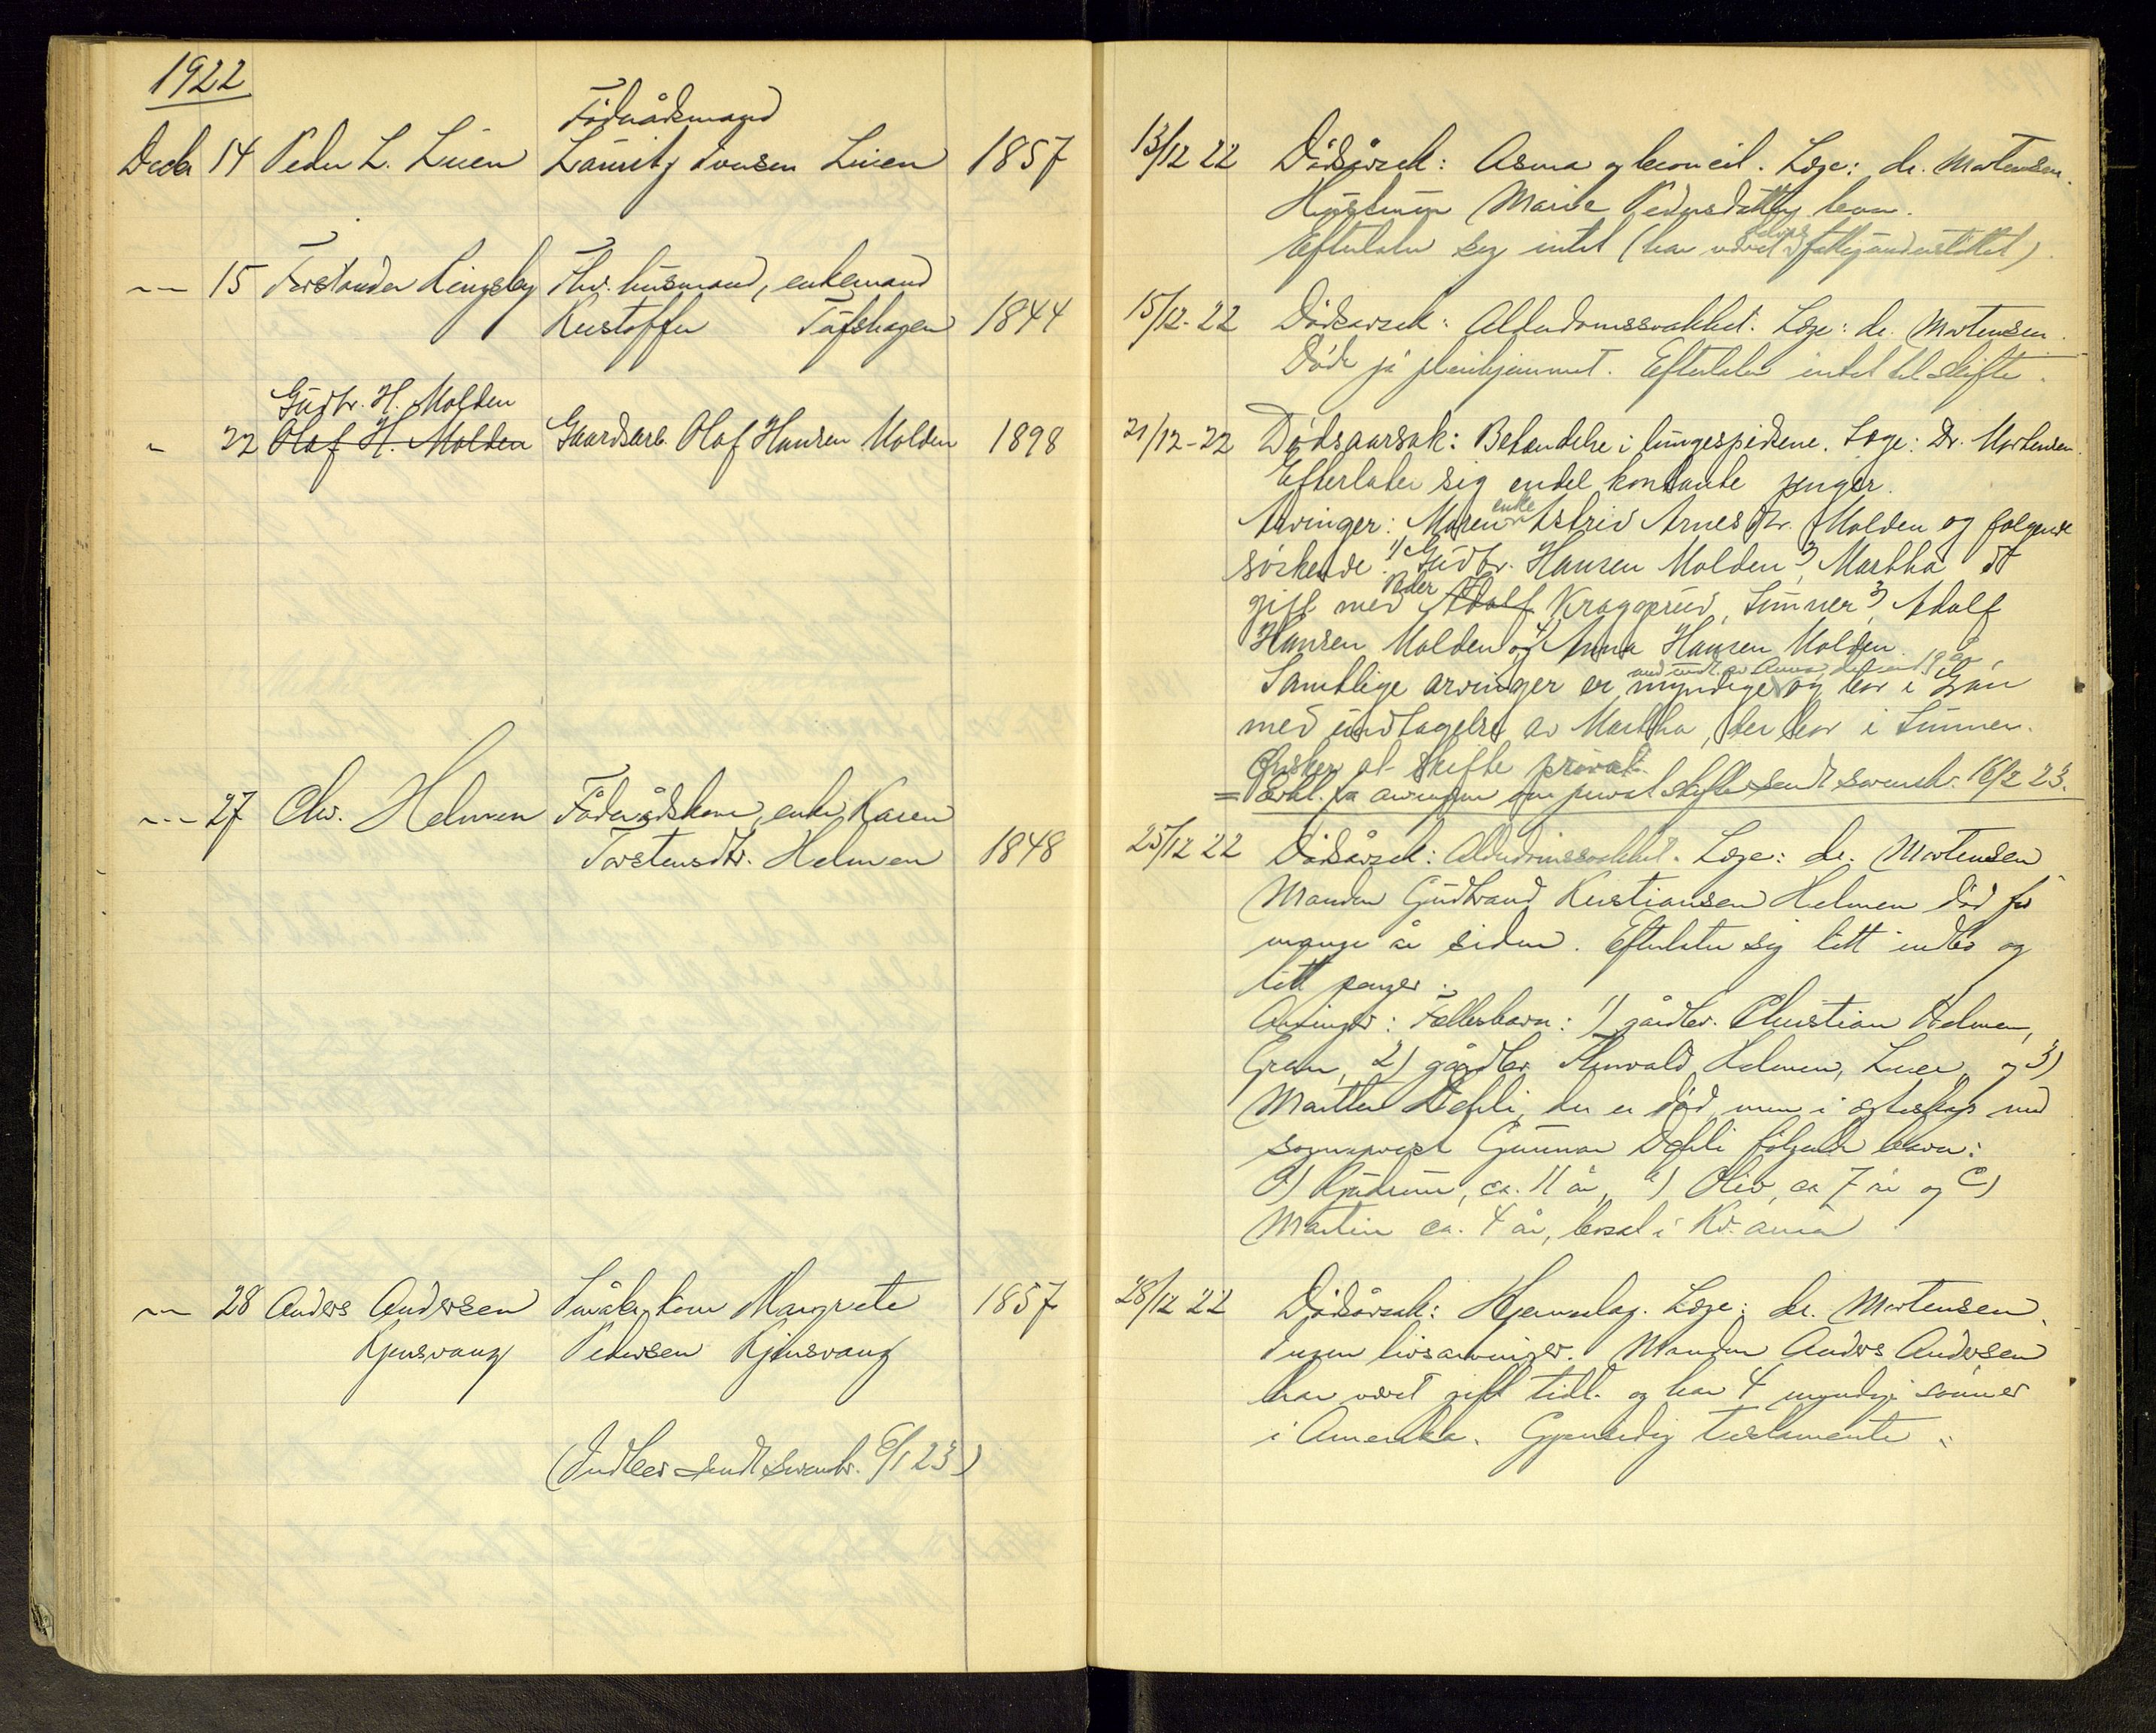 1922
Decbr 14 Peder L. Lien
Föderådsmand
Lauritz Iversen Lien 1857
13/12 22 Dödsårsak: Asma og broncit. Læge: dr. Mortensen.
Hustruen Marie Pedersdatter lever.
Efterlater sig intet (har været fattigunderstöttet).
— 15 Forstander Ringsby Fhv. husmand, enkemand
Kristoffer Tufshagen 1844
15/12-22 Dödsårsak: Alderdomssvakhet. Læge: dr. Mortensen.
Död på pleiehjemmet. Efterlater intet til skifte.
Gudbr. H. Molden
" 22 Olaf H. Molden Gaardsarb. Olaf Hansen Molden 1898
21/12-22 Dødsaarsak: Betændelse i lungespidsene. Læge: Dr. Mortensen.
Efterlater sig endel kontante penger.
Arvinger: Moren enke Astrid Arnesdtr. Molden og følgende
søskende: 1) Gudbr. Hansen Molden 2) Martha
gift med Peder Adolf Kraggerud, Lunner 3) Adolf
Hansen Molden og 4) Anna Hansen Molden.
Samtlige arvinger er myndige med undt. av Anna, og bor i Gran
med undtagelse av Martha, der bor i Lunner.
Ønsker at skifte privat.
= Erkl. fra arvingene om privat skifte sendt sorenskr. 16/2 23.
— 27 Chr. Helmen Föderådskone, enke Karen
Torstensdtr. Helmen 1848
25/12 22 Dödsårsak: Alderdomssvakhet. Læge: dr. Mortensen
Manden Gudbrand Kristiansen Helmen död for
mange år siden. Efterlater sig litt indbo og
litt penger.
Arvinger: Fællesbarn: 1) gårdbr. Christian Helmen,
Gran, 2) gårdbr. Thorvald Helmen, Lier, og 3)
Marthe Defli, der er död, men i egteskap med
sogneprest Gunnar Defli følgende barn:
a) Gudrun, ca. 11 år, b) Oliv, ca 7 år og c)
Martin ca. 4 år, bosat i Kr.ania
— 28 Anders Andersen Småbr.kone Margrete
Kjensvang Pedersen Kjensvang 1857
28/12 22 Dödsårsak: Hjerneslag. Læge: dr. Mortensen.
Ingen livsarvinger. Manden Anders Andersen
har været gift tidl. og har 4 myndige sønner
i Amerika. Gjensidig testamente.
(Indber. sendt sorenskr. 6/1 23)